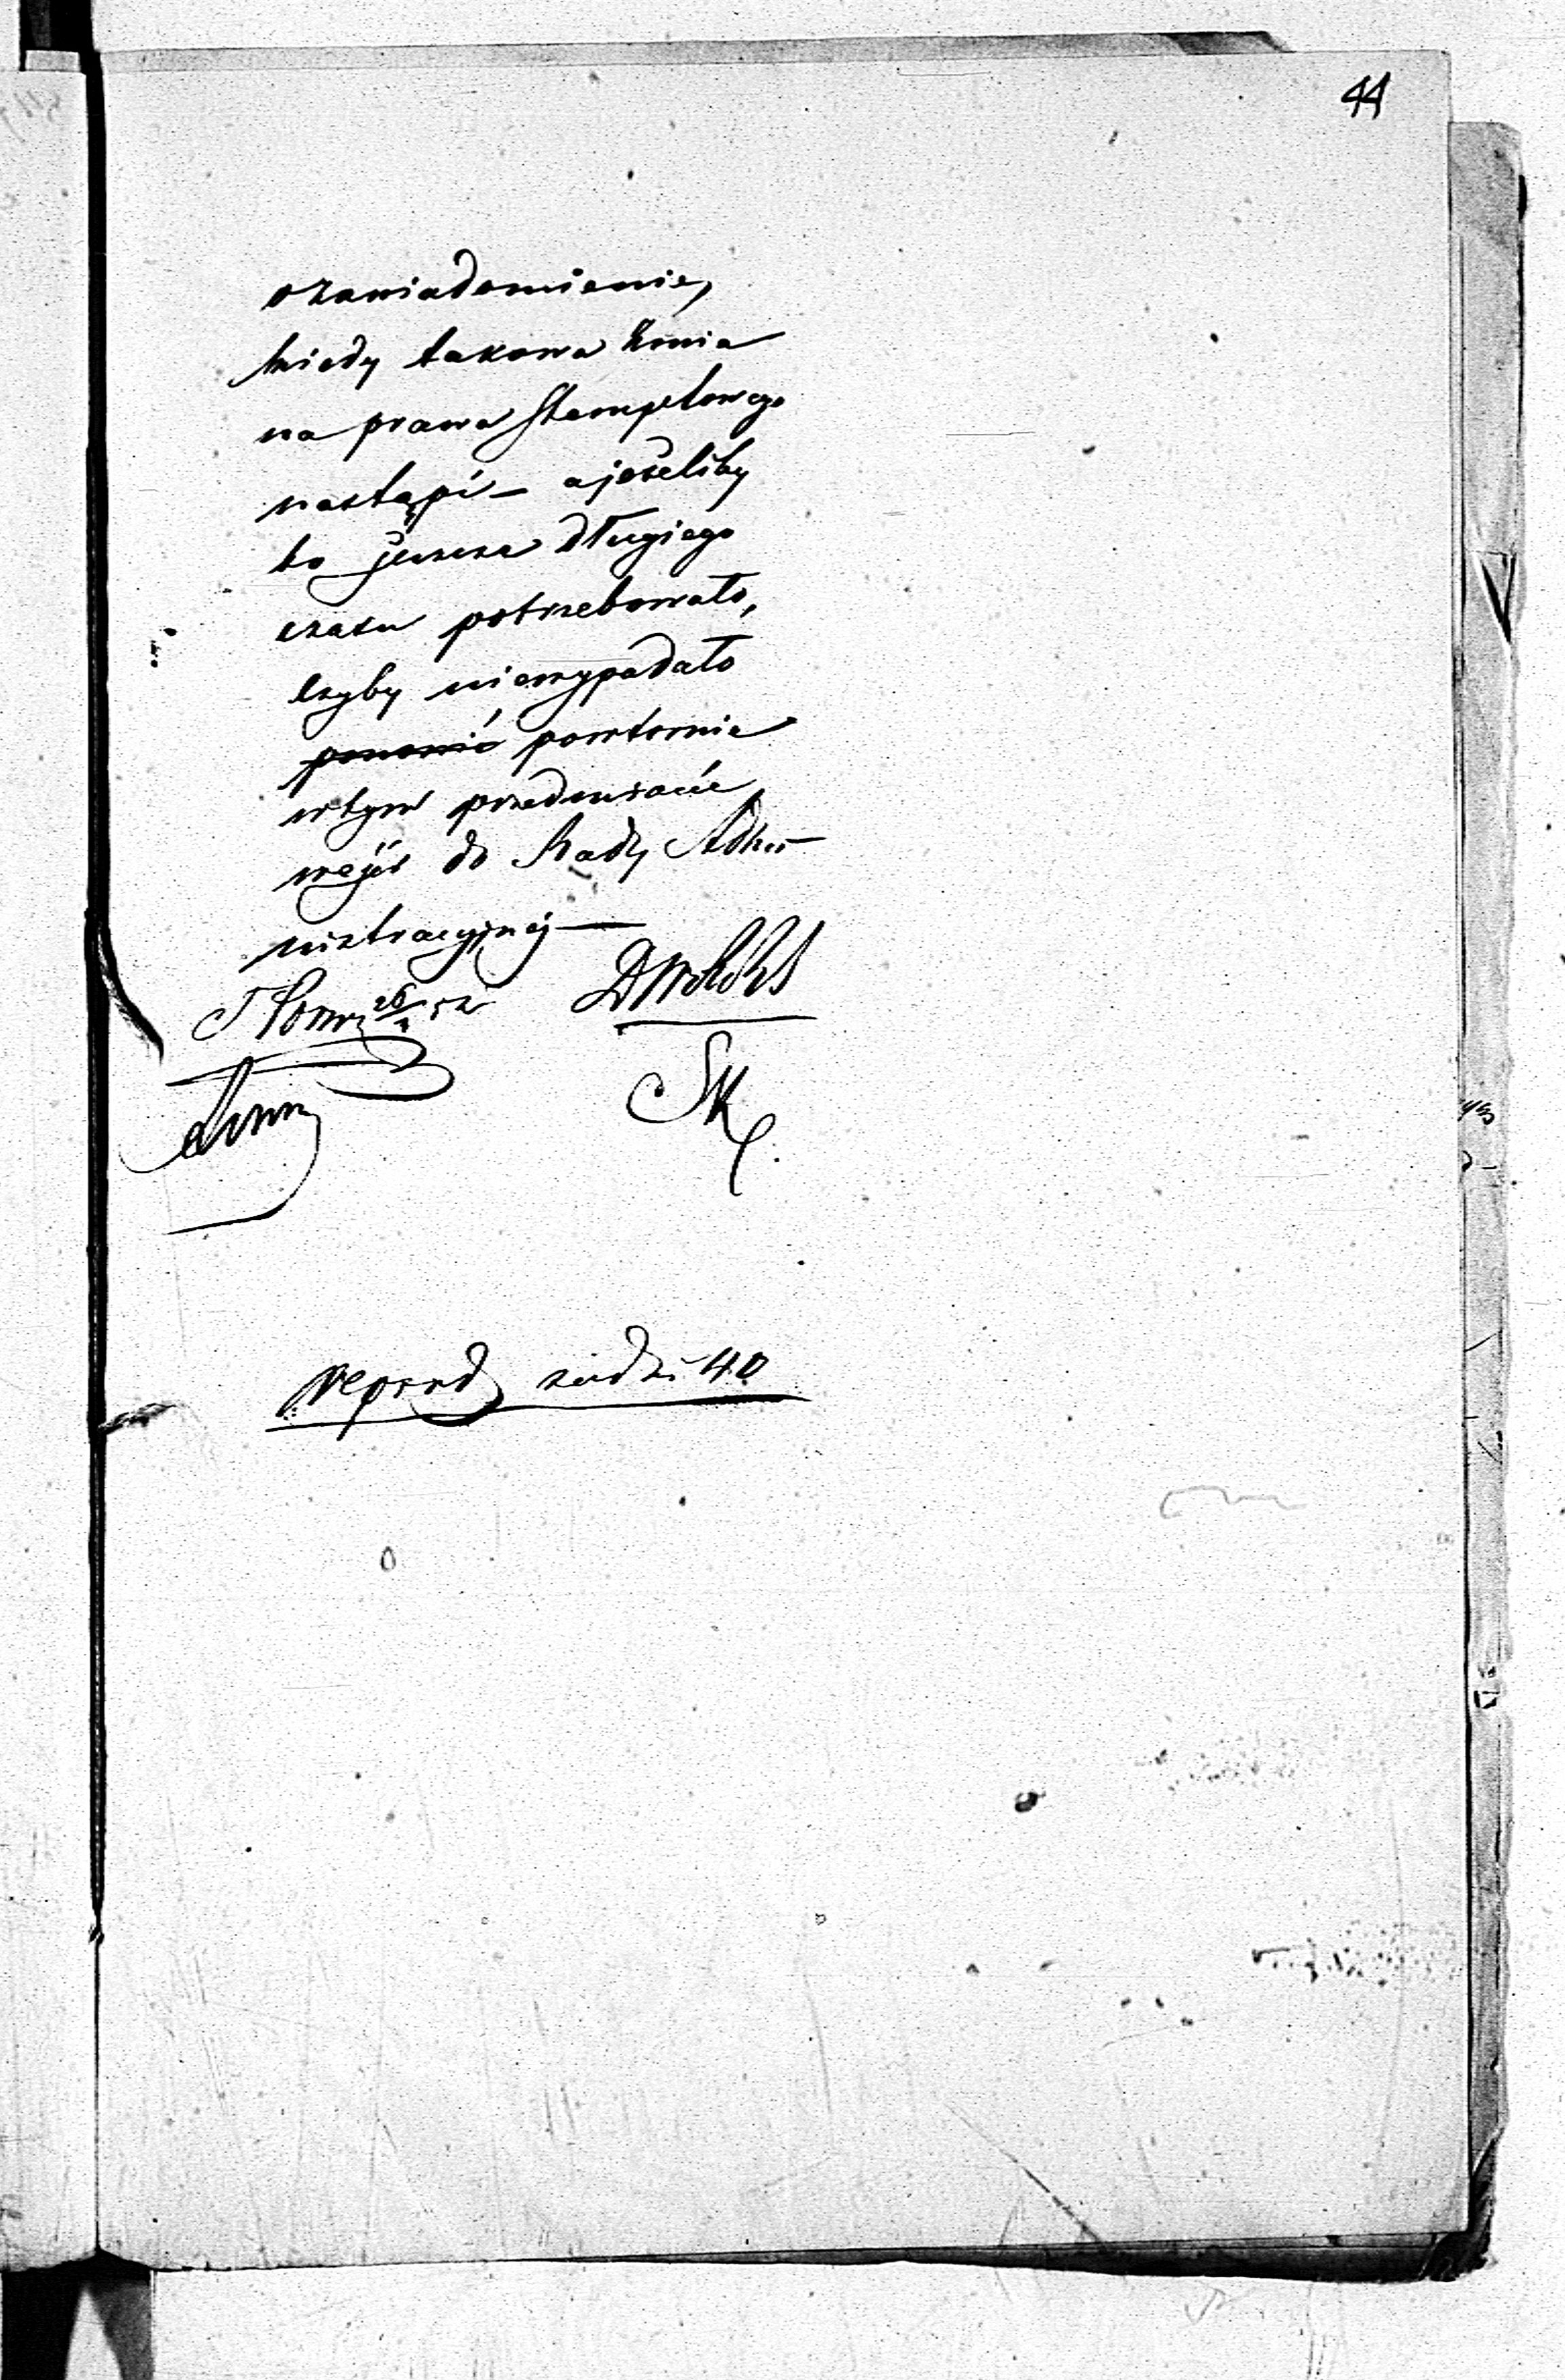 44
o zawiadomienie,
kiedy takowa zmia
na prawa Stemplowego
nastąpi — a jeżeliby
to jeszcze długiego
czasu potrzebowało,
czyby niewypadało
ponowić powtórnie
w tym przedmiocie
wejść do Rady Admi-
nistracyjnej —
26
SK
40